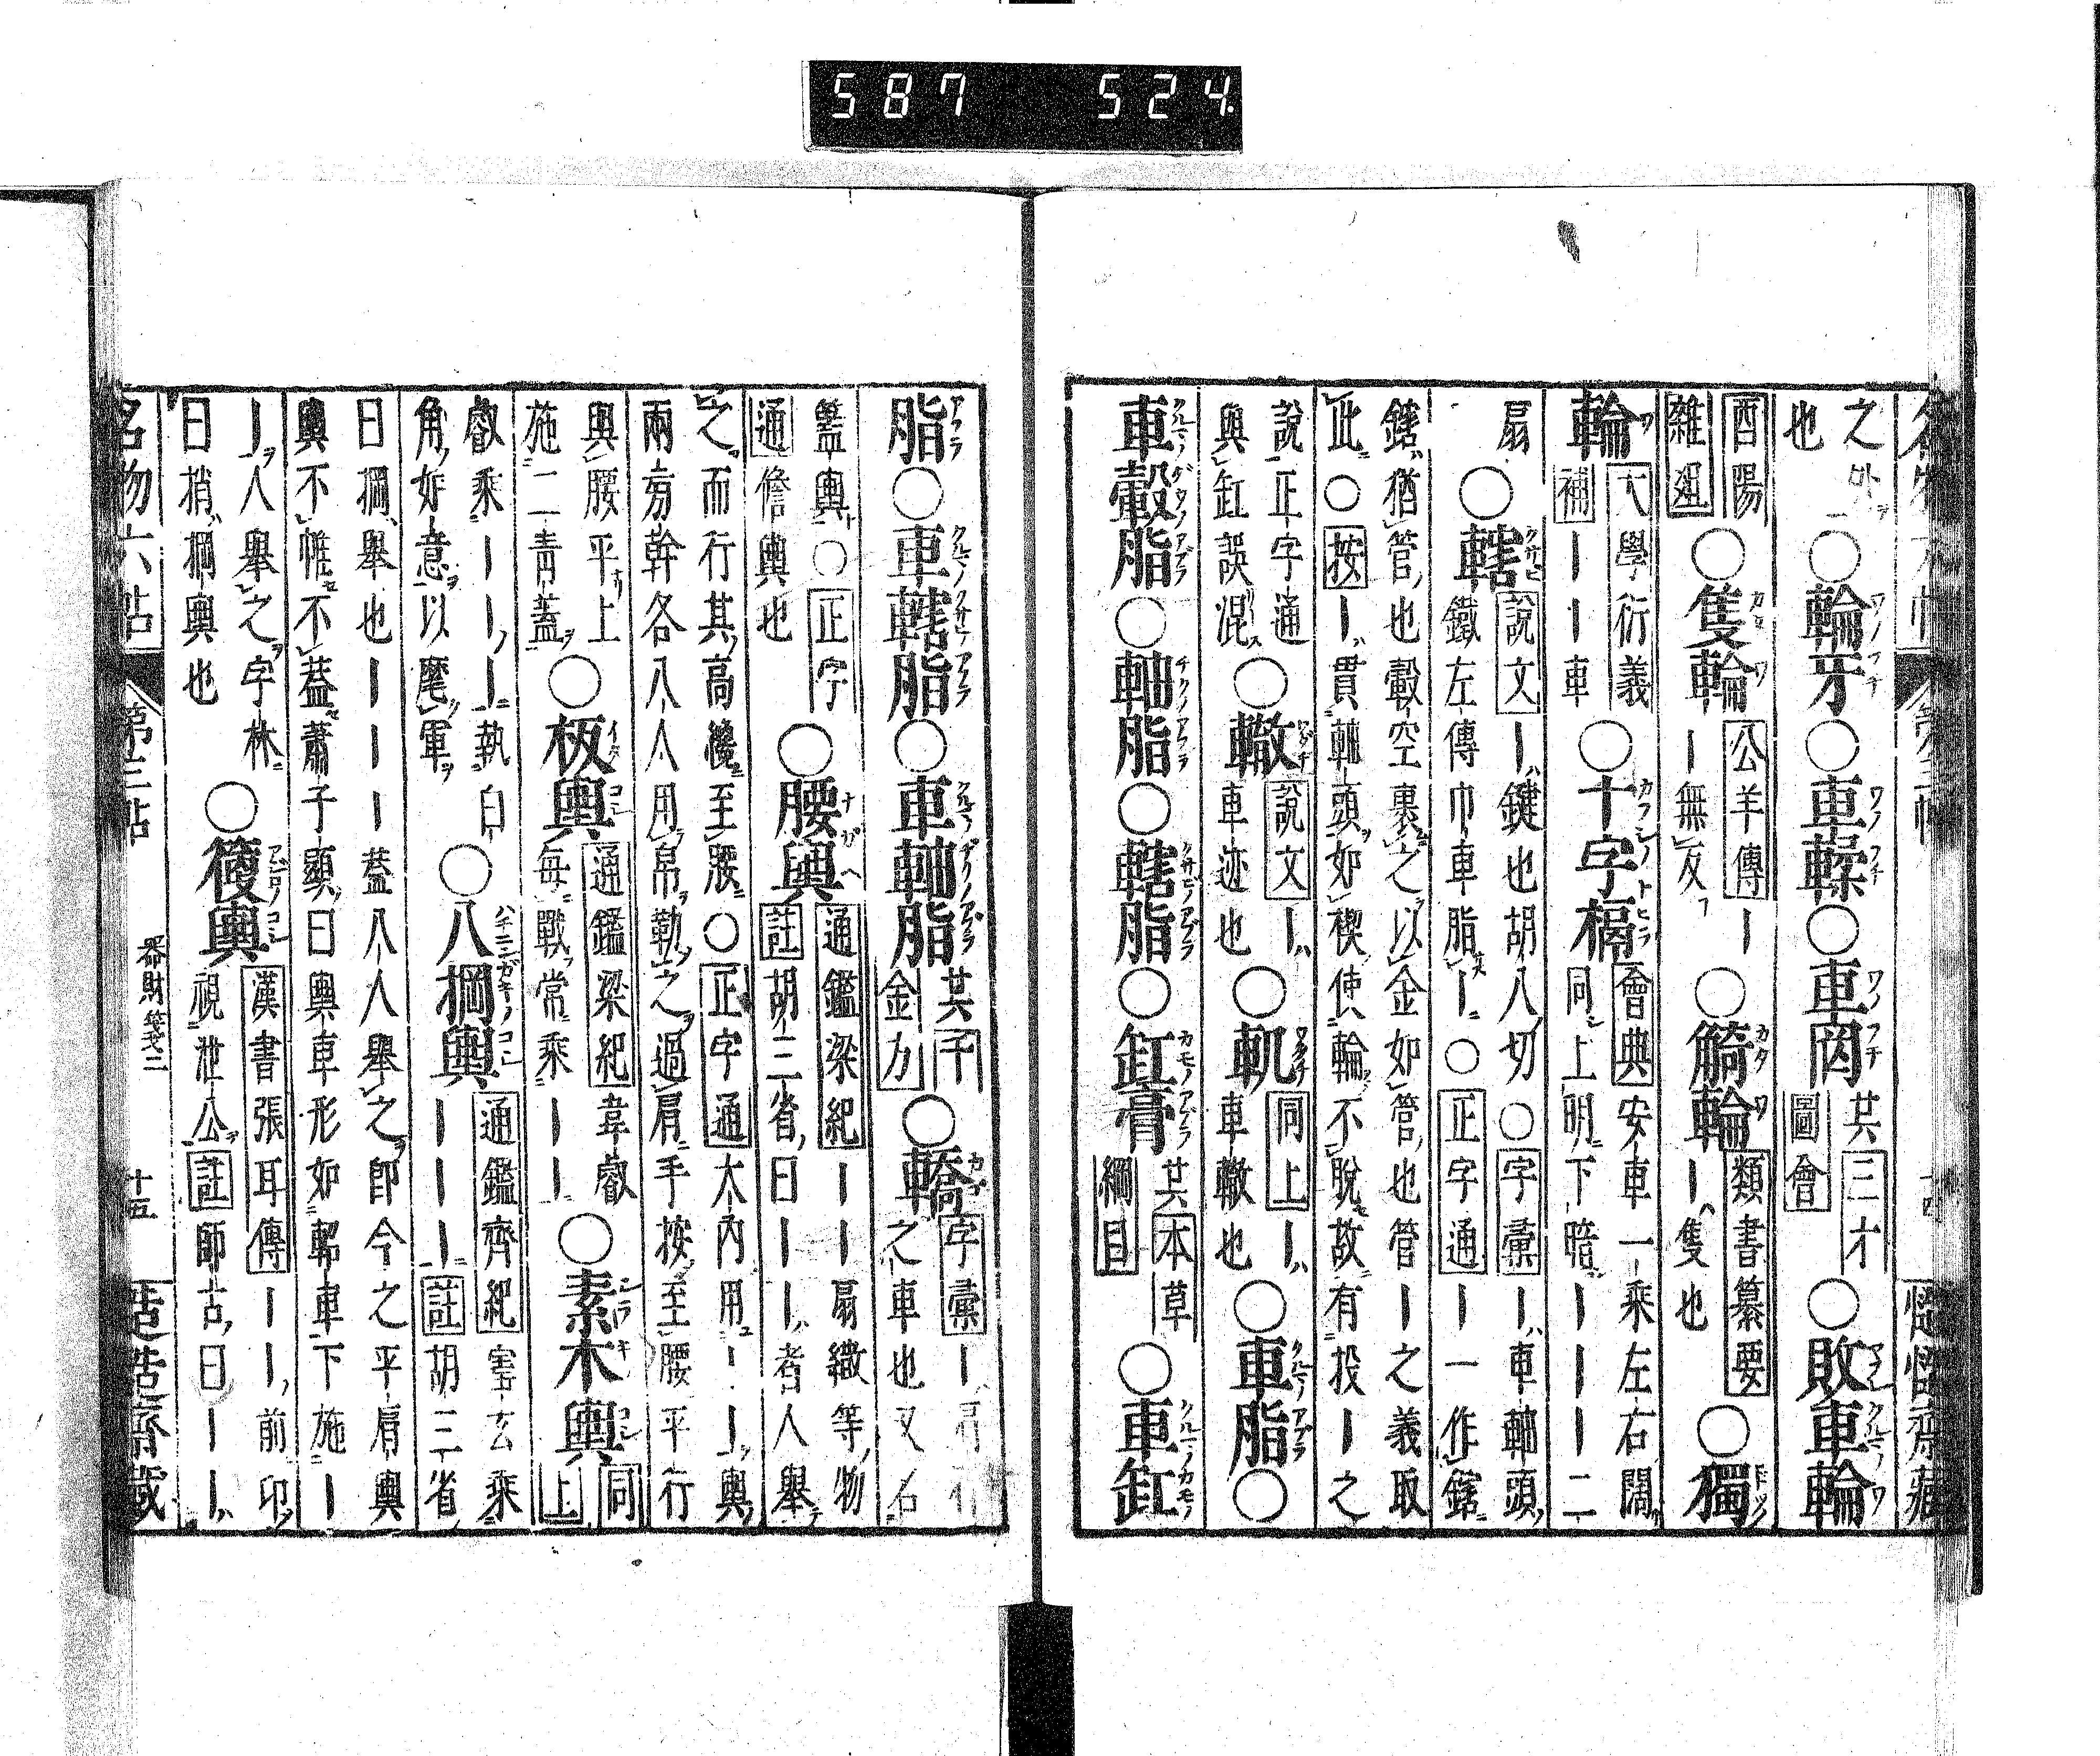 587 524
之外
也
○輪牙○車輮○車罔
其三才
圖會
○敗車輪
酉陽
雜俎
○隻輪
公羊傳｜
｜無友
○觭輪
類書纂要
｜隻也
○獨
輪
大學衍義
補｜｜車
○十字槅
會典安車一乘左右闊
同上明下暗｜｜｜二
扇
○轄
說文｜鍵也胡八切○字彙｜車軸頭
鐵左傳巾車脂｜○正字通｜一作鎋
鎋猶管也轂空裏之以金如管也管｜之義取
此○按｜貫軸頭如楔使輪不脫故有投｜之
說正字通
與缸誤混
○轍
說文｜
車迹也
○軌
同上｜
車轍也
○車脂○
車轂脂○軸脂○轄脂○缸膏
其本草
綱目
○車缸
脂○車轄脂○車軸脂
其千
金方
○轎
字彙｜
之車也又名
籃輿○正字
通擔輿也
○腰輿
通鑑梁紀｜｜扇繖等物
註胡三省曰｜｜者人舉
之而行其高纔至腰○正字通大內用｜｜輿
兩旁幹各八人用帛勒之過肩手按至腰平行
輿腰平上
施二青蓋
○板輿
通鑑梁紀韋叡
每戰常乘｜｜
○素木輿
同
上
叡乘｜｜｜執白
角如意以麾軍
○八掆輿
通鑑齊紀害玄乘
｜｜｜註胡三省
曰掆舉也｜｜｜蓋八人舉之卽今之平肩輿
輿不帷不蓋蕭子顯曰輿車形如軺車下施｜
｜人舉之字林
曰捎掆輿也
○箯輿
漢書張耳傳｜｜前卬
視泄公註師古曰｜｜
名物六帖
第三帖
器財箋二
十五